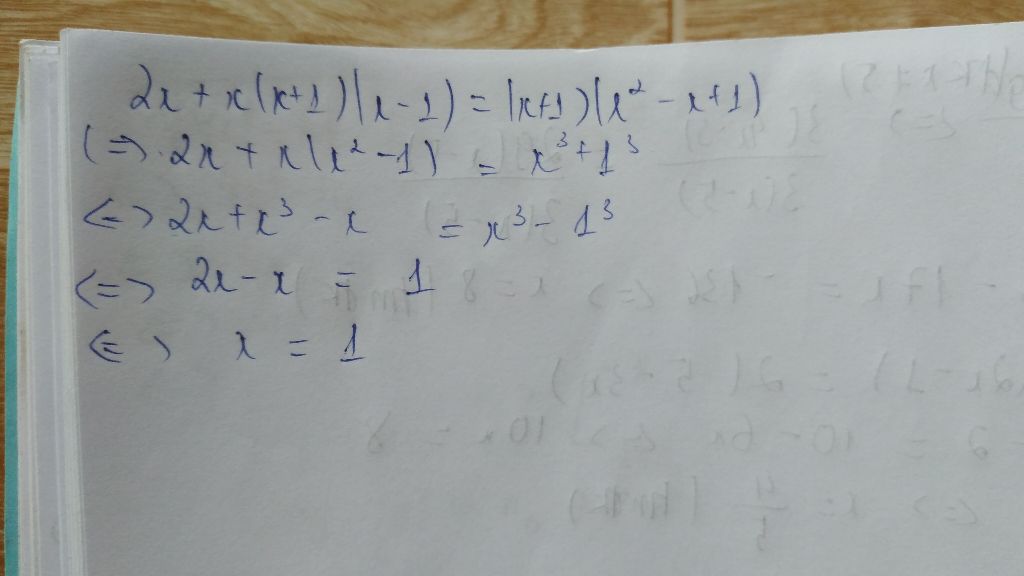 2x + x(x+1)(x-1) = (x+1)(x² - x+1)
(=> 2x + x(x² - 1) = x³ + 1³
<=> 2x + x³ - x = x³ - 1³
<=> 2x - x = 1
<=> x = 1